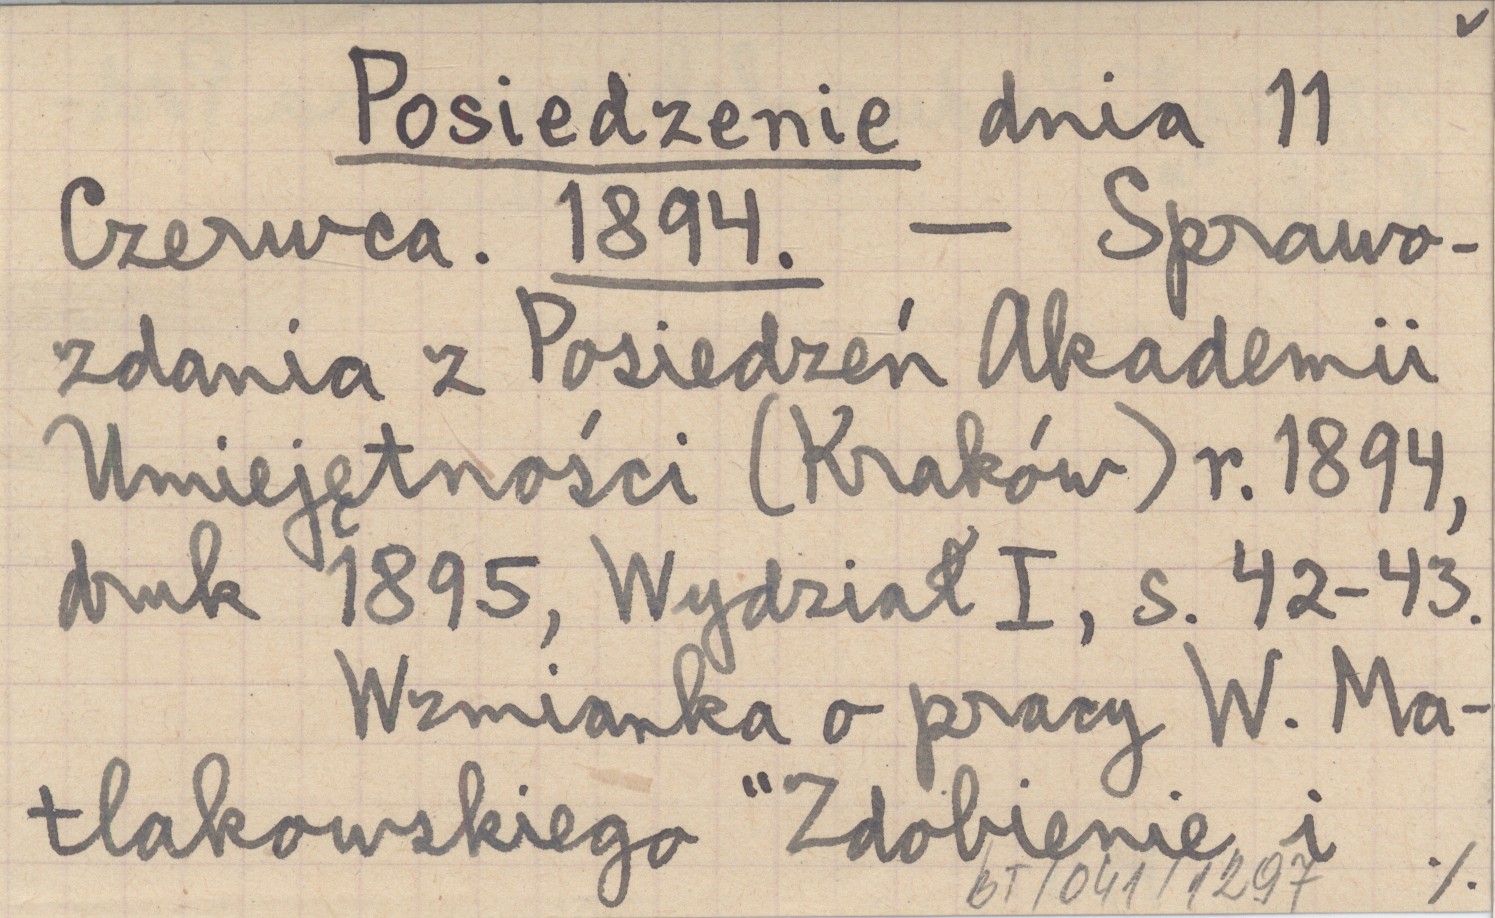 Posiedzenie dnia 11
Czerwca. 1894. — Sprawo-
zdania z Posiedzeń Akademii
Umiejętności (Kraków) r. 1894,
druk 1895, Wydział I, s. 42-43.
Wzmianka o pracy W. Ma-
tlakowskiego "Zdobienie i
BT/041/1297 ./.